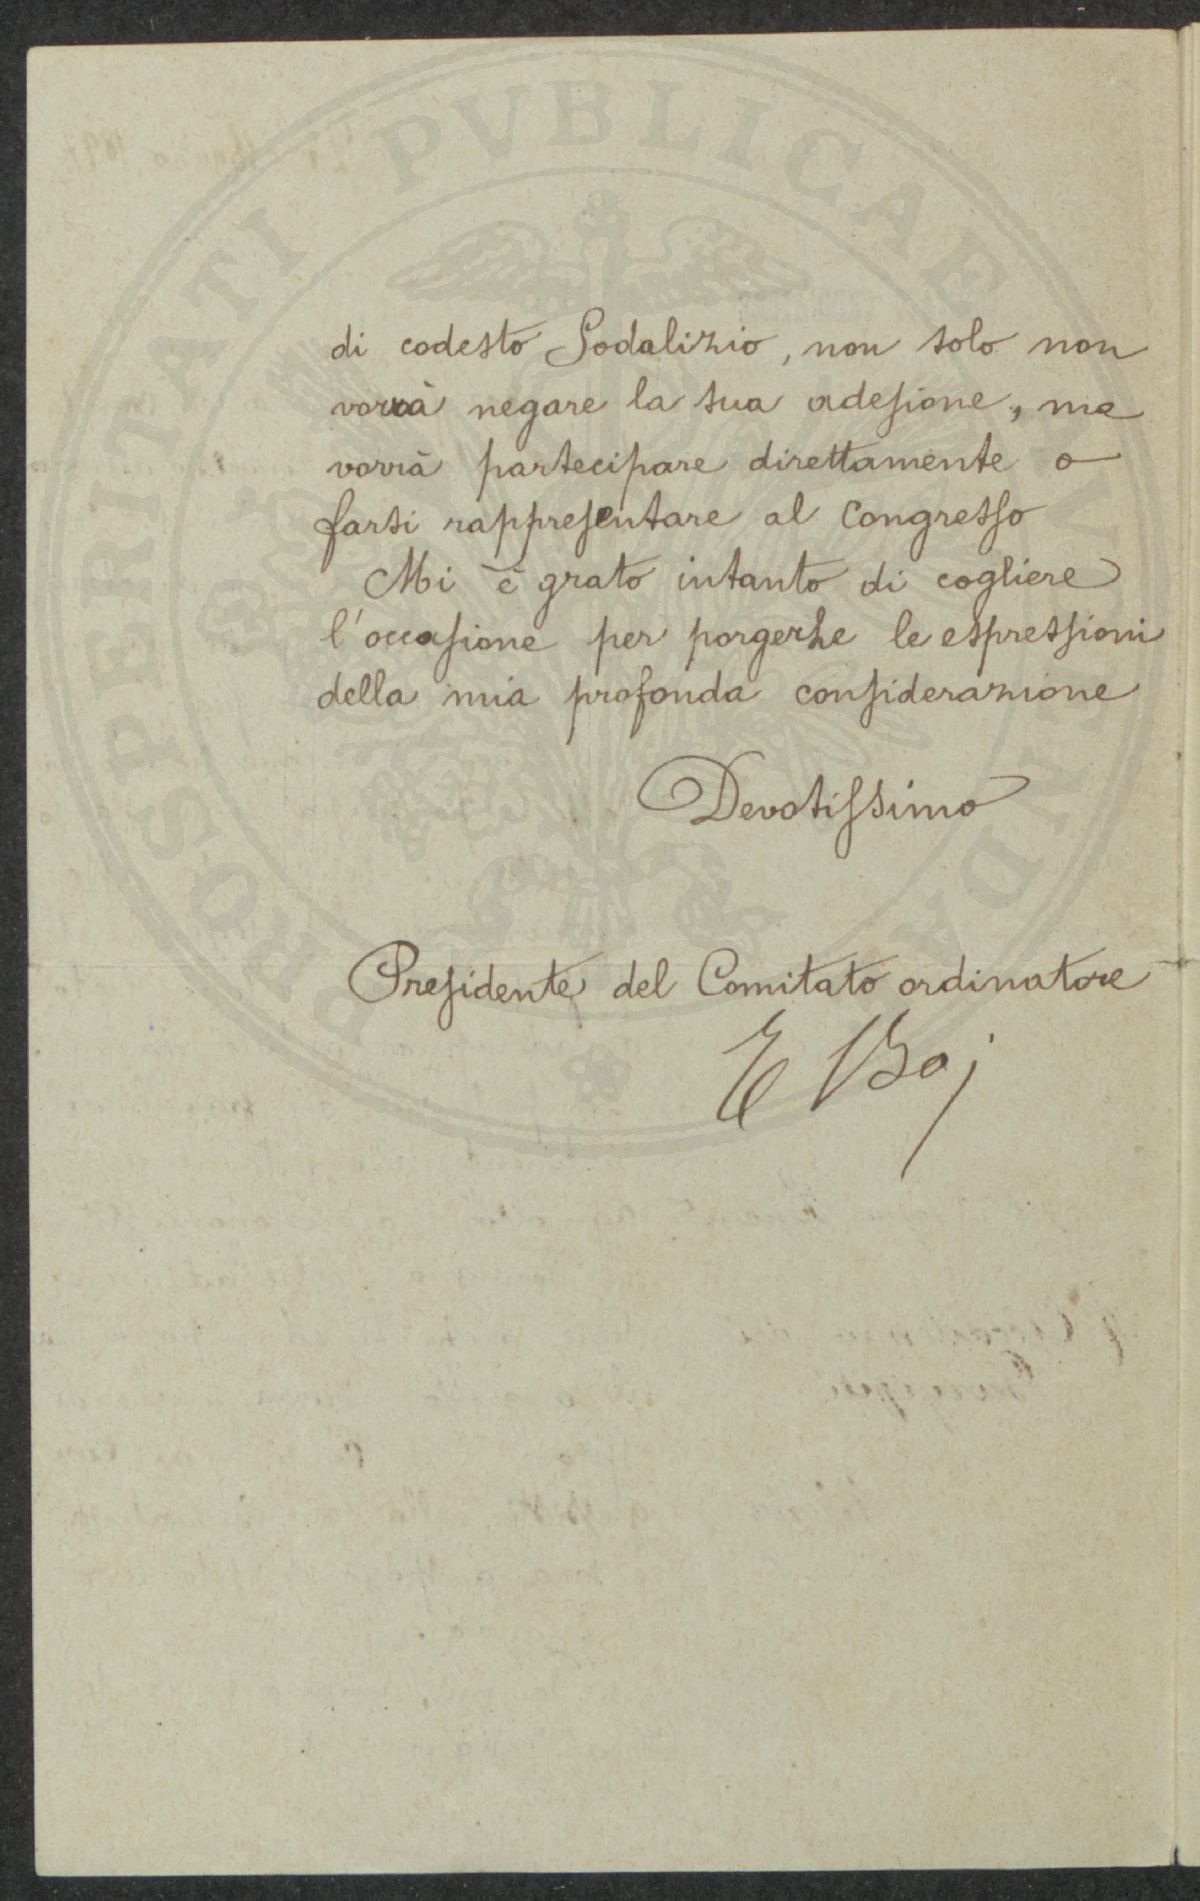 PROSPERITATI PVBLICAE AVGENDAE
di codesto Sodalizio, non solo non
vorrà negare la sua adesione, ma
vorrà partecipare direttamente o
farsi rappresentare al Congresso
Mi è grato intanto di cogliere
l'occasione per porgerLe le espressioni
della mia profonda considerazione
Devotissimo
Presidente del Comitato ordinatore